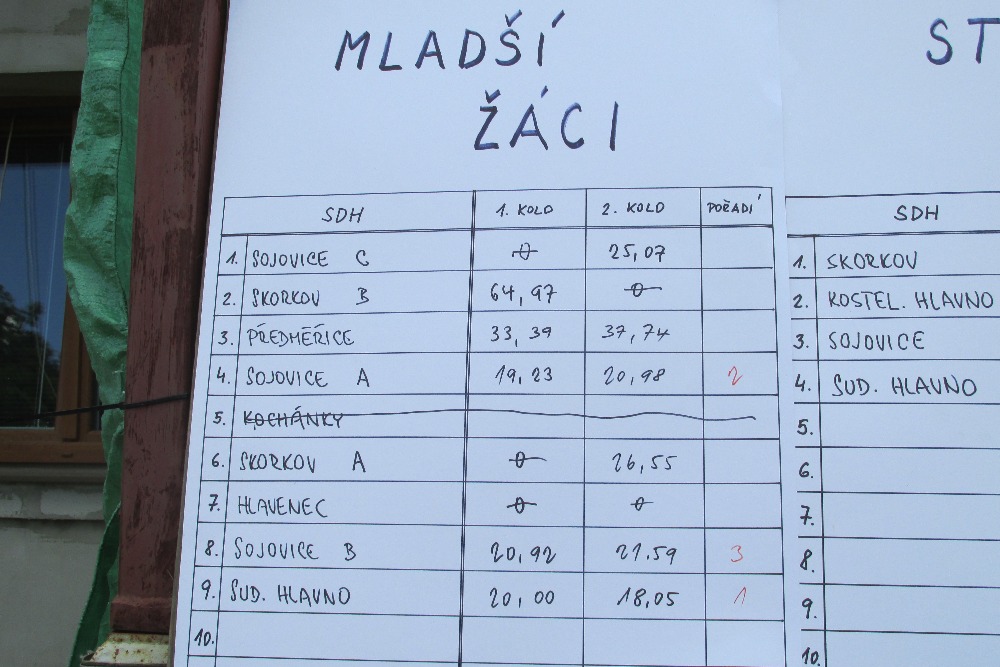 MLADŠÍ
ŽÁCI
SDH 1. KOLO 2. KOLO POŘADÍ
1. SOJOVICE C 0 25,07
2. SKORKOV B 64,97 0
3. PŘEDMĚŘICE 33,39 37,74
4. SOJOVICE A 19,23 20,98 2
5. KOCHÁNKY
6. SKORKOV A 0 26,55
7. HLAVENEC 0 0
8. SOJOVICE B 20,92 21.59 3
9. SUD. HLAVNO 20,00 18,05 1
10.
ST
SDH
1. SKORKOV
2. KOSTEL. HLAVNO
3. SOJOVICE
4. SUD. HLAVNO
5.
6.
7.
8.
9.
10.